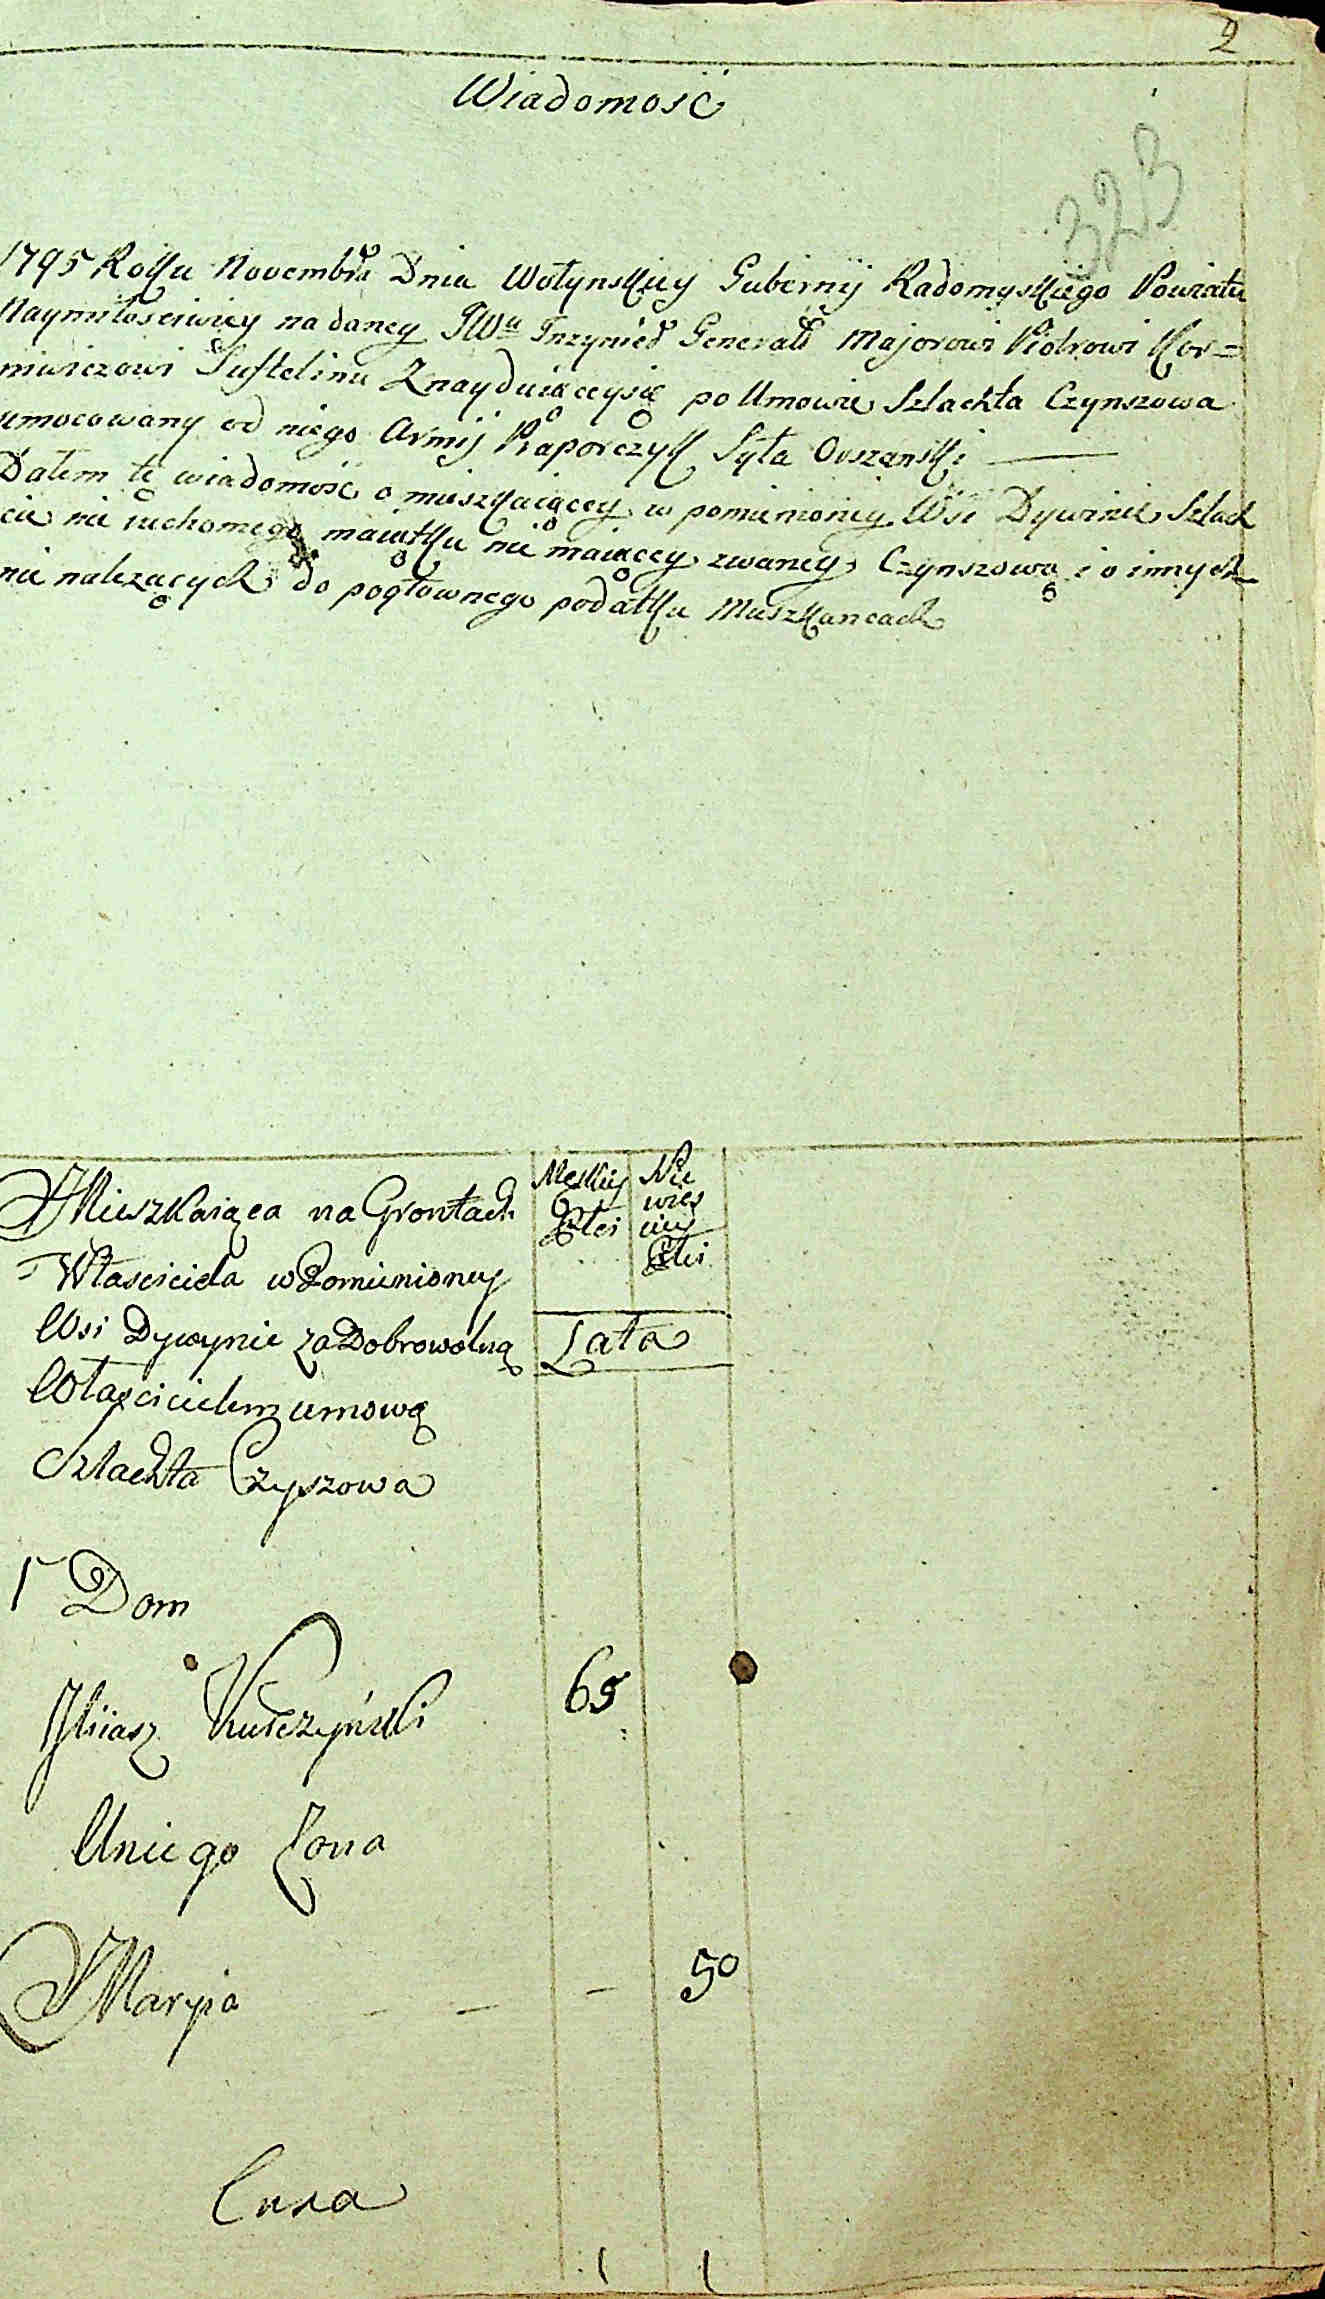 2
Wiadomość
323
1795 Roku Novembra Dnia Wołynskiey Gubernij Radomyskiego Powiatu
Naymiłosciwiey nadaney JWu Inzynier Generał Majorowi Piotrowi Kor=
niewiczowi Suftelinu Znayduiąceysię po Umowie Szlachta Czynszowa
umocowany od niego Armij Praporczyk Syła Orszanski
Dałem tę wiadomość o mieszkaiącey w pomienioney Wsi Dywinie Szlach
cie nie ruchomego maiątku nie maiącey zwaney Czynszową i o innych
nie nalezących do pogłownego podatku Mieszkancach
Mieszkaiąca na Grontach
Własciciela w Pomienioney
Wsi Dywynie za Dobrowolną
Włascicielem umową
Szlachta Czyszowa
Męskiey
Płci
Nie
wies
ciey
Płci
Lata
1 Dom
Jliiasz Kulczyński 65
U niego Zona
Marya - - - 50
Cusa
1 1